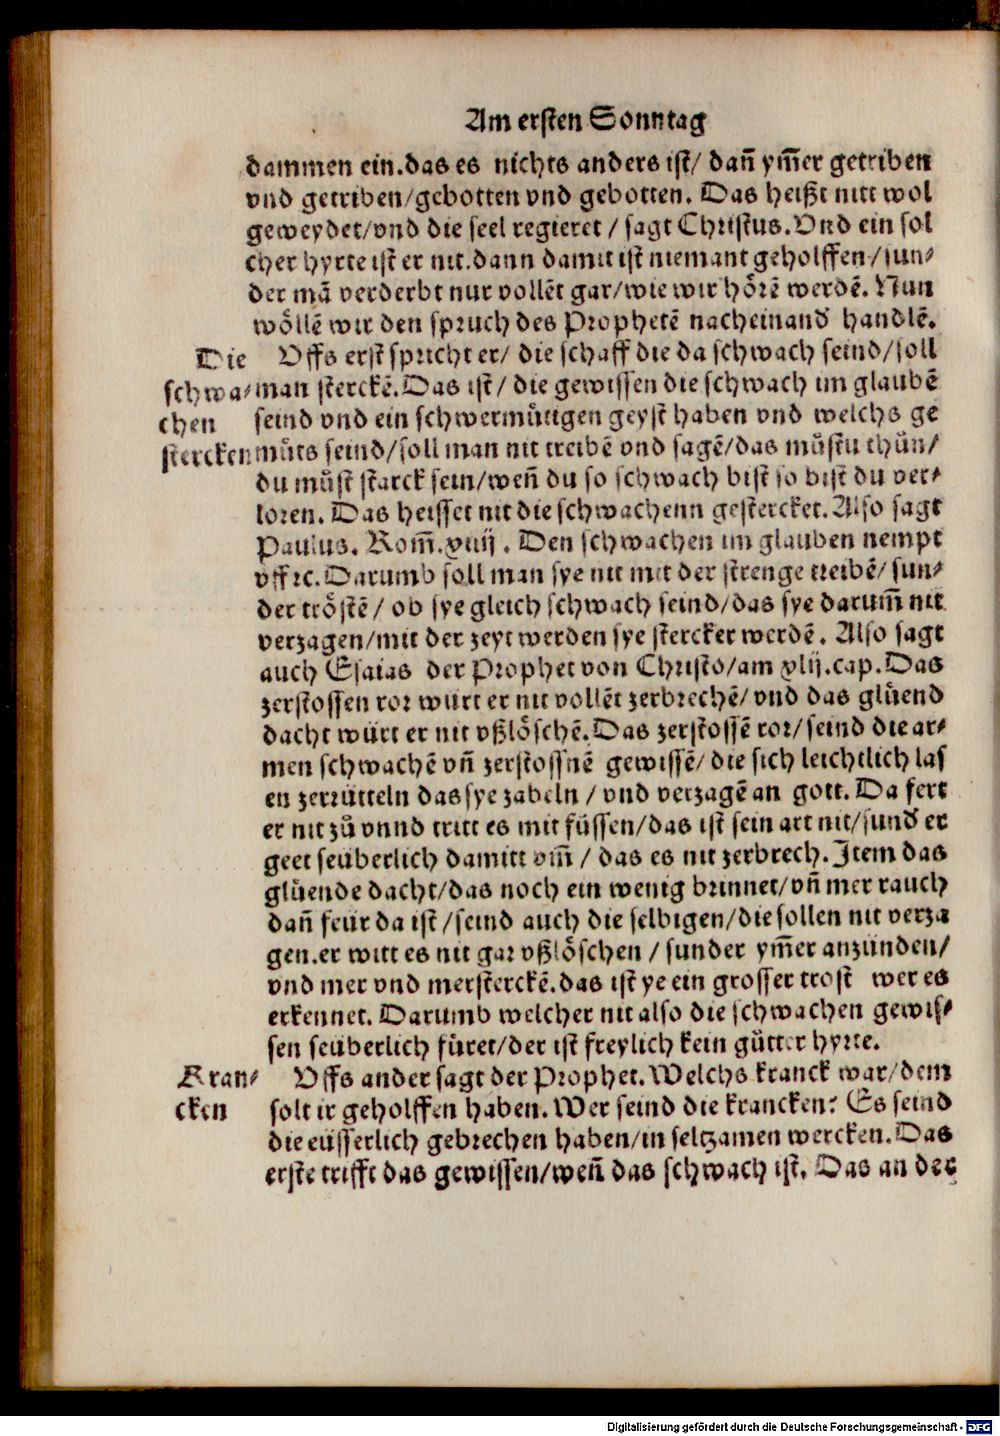 Am ersten Sonntag
dammen ein.das es nichts anders ist/ dañ ym̃er getriben
vnd getriben/gebotten vnd gebotten. Das heißt nitt wol
geweydet/vnd die seel regieret / sagt Christus.Vnd ein sol
cher hyrte ist er nit.dann damit ist niemant geholffen/sun⸗
der mã verderbt nur vollẽt gar/wie wir hoͤrẽ werdẽ. Nun
woͤllẽ wir den spruch des Prophetẽ nacheinand̕ handlẽ.
Die
schwa⸗
chen
stercken
Vffs erst spricht er/ die schaff die da schwach seind/soll
man sterckẽ.Das ist/ die gewissen die schwach im glaubẽ
seind vnd ein schwermuͤtigen geyst haben vnd welchs ge
muͤts seind/soll man nit treibẽ vnd sagẽ/das muͦstu thuͦn/
du muͦst starck sein/weñ du so schwach bist so bist du ver⸗
loren. Das heisset nit die schwachenn gestercket. Also sagt
Paulus. Rom̃.xiiij . Den schwachen im glauben nempt
vff ⁊c. Darumb soll man sye nit mit der strenge treibẽ/ sun⸗
der troͤstẽ / ob sye gleich schwach seind/das sye darum̃ nit
verzagen/mit der zeyt werden sye stercker werdẽ. Also sagt
auch Esaias der Prophet von Christo/am xlij.cap. Das
zerstossen ror würt er nit vollẽt zerbrechẽ/ vnd das gluͤend
dacht würt er nit vßloͤschẽ.Das zerstossẽ ror/ seind die ar⸗
men schwachẽ vñ zerstossnẽ gewissẽ/ die sich leichtlich las
en zerrütteln das sye zabeln / vnd verzagẽ an gott. Da fert
er nit zuͦ vnnd tritt es mit füssen/das ist sein art nit/sund̕ er
geet seüberlich damitt vm̃ / das es nit zerbrech. Item das
gluͤende dacht/das noch ein wenig brinnet/vñ mer rauch
dañ feür da ist /seind auch die selbigen/die sollen nit verza
gen.er wirt es nit gar vßloͤschen / sunder ym̃er anzünden/
vnd mer vnd mer sterckẽ.das ist ye ein grosser trost wer es
erkennet. Darumb welcher nit also die schwachen gewis⸗
sen seüberlich füret/der ist freylich kein guͤtter hyrte.
Kran⸗
cken
Vffs ander sagt der Prophet. Welchs kranck war/dem
solt ir geholffen haben. Wer seind die krancken? Es seind
die eüsserlich gebrechen haben/in seltzamen wercken. Das
erste trifft das gewissen/weñ das schwach ist. Das an der
Digitalisierung gefördert durch die Deutsche Forschungsgemeinschaft - DFG